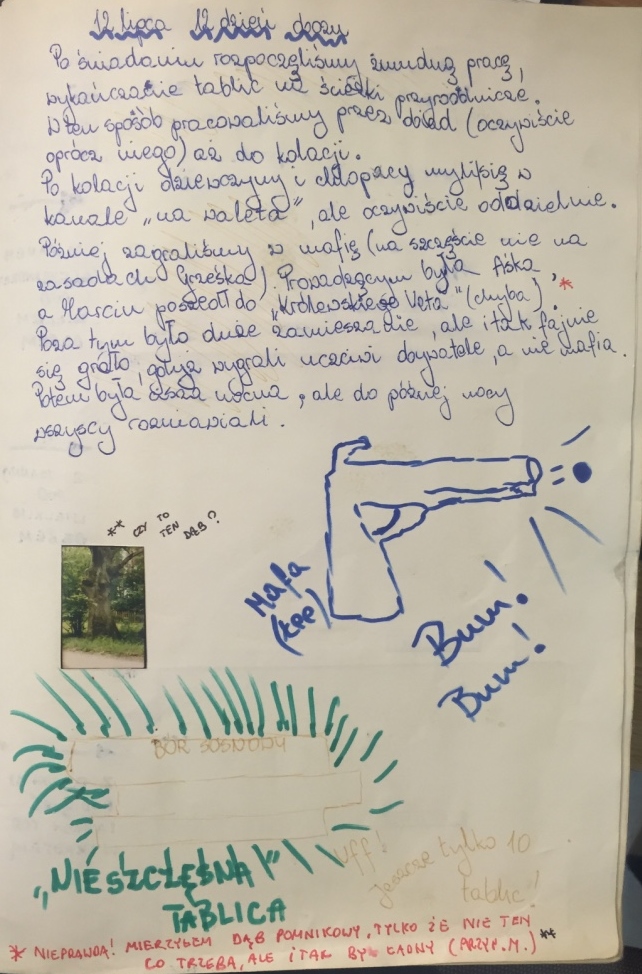 12 lipca 12 dzień obozu
Po śniadaniu rozpoczęliśmy żmudną pracę,
wykańczanie tablic na ścieżki przyrodnicze.
W ten sposób pracowaliśmy przez obiad (oczywiście
oprócz niego) aż do kolacji.
Po kolacji dziewczyny i chłopacy myli się w
kanale „na waleta”, ale oczywiście oddzielnie.
Później zagraliśmy w mafię (na szczęście nie na
zasadach Grześka). Prowadzącym była Aśka,
a Marcin poszedł do „Królewskiego Veta” (chyba). *
Poza tym było duże zamieszanie, ale i tak fajnie
się grało, gdyż wygrali uczciwi obywatele, a nie mafia.
Potem była cisza nocna, ale do późnej nocy
wszyscy rozmawiali.
** CZY TO
TEN
DĄB?
Mafa
Bum!
Bum!
BÓR SOSNOWY
„NIESZCZĘSNA”
TABLICA
Uff!
jeszcze tylko 10
tablic!
* NIEPRAWDA! MIERZYŁEM DĄB POMNIKOWY, TYLKO ŻE NIE TEN
CO TRZEBA, ALE I TAK BYŁ ŁADNY (PRZYP. M.) **